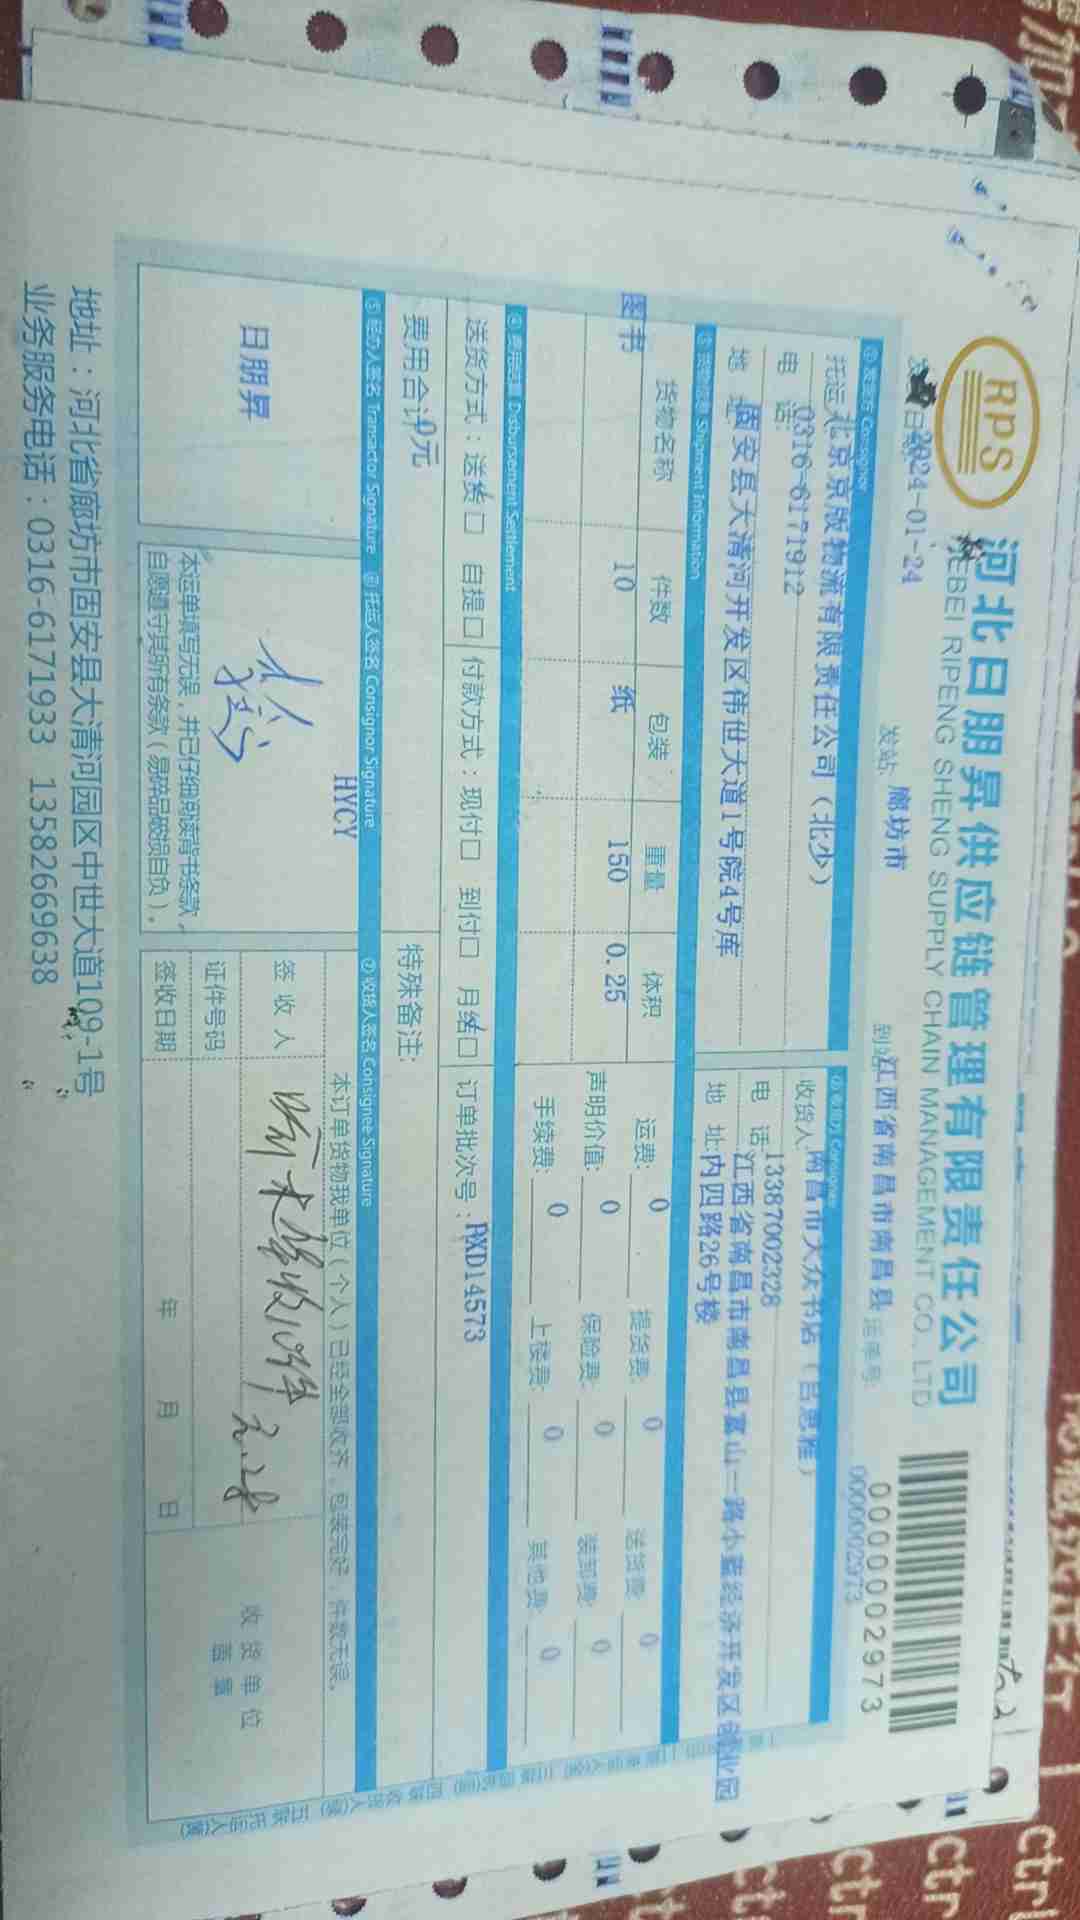 RPS
河北日朋昇供应链管理有限责任公司
HEBEI RIPENG SHENG SUPPLY CHAIN MANAGEMENT CO., LTD
0000002973
2024-01-24 发站: 廊坊市 到站:江西省南昌市南昌县 运单号: 0000002973
① 发货方 Consignor ② 收货方 Consignee
托运人:北京京版物流有限责任公司（北少） 收货人:南昌市大众书店（吕思雅）
电 话:0316-6171912 电 话:13387002328
地 址:固安县大清河开发区伟世大道1号院4号库 地 址:江西省南昌市南昌县富山一路小蓝经济开发区创业园
内四路26号楼
③ 货物信息 Shipment Information
货物名称 件数 包装 重量 体积 运费: 0 提货费: 0 送货费: 0
图书 10 纸 150 0.25 声明价值: 0 保险费: 0 装卸费: 0
手续费: 0 上楼费: 0 其他费: 0
④ 费用结算 Disbursement Settlement
送货方式：送货□ 自提□ 付款方式：现付□ 到付□ 月结□ 订单批次号：RXD14573
费用合计0元 特殊备注:
⑤ 经办人签名 Transactor Signature ⑥ 托运人签名 Consignor Signature ⑦ 收货人签名 Consignee Signature
HYCY
日朋昇
本订单货物我单位（个人）已经全部收齐，包装完好，件数无误。
签 收 人
证件号码
签收日期 年 月 日
收 货 单 位
盖 章
本运单填写无误，并已仔细阅读背书条款，
自愿遵守其所有条款（易碎品破损自负）。
地址：河北省廊坊市固安县大清河园区中世大道109-1号
业务服务电话：0316-6171933 13582669638